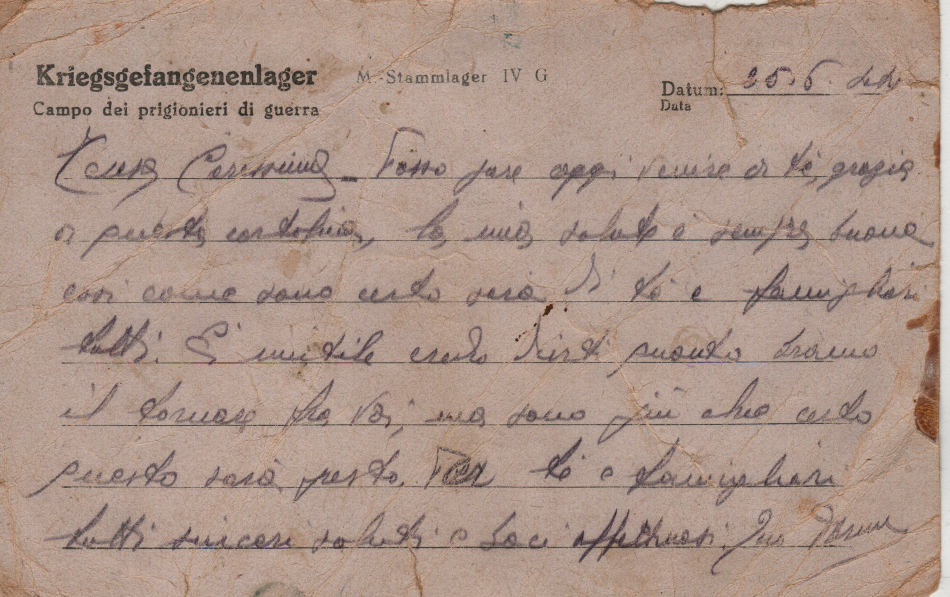 Kriegsgefangenenlager M.-Stammlager IV G
Campo dei prigionieri di guerra
Datum: 25.6.44
Data
Carissima Posso pure oggi venire a té, grazia
a questa cartolina, la mia salute è sempre buona
cosi come sono certo sarà di té e famigliari
tutti. È inutile credo dirti quanto bramo
il tornare fra voi, ma sono più che certo
questo sarà presto. Per té e famigliari
tutti sinceri saluti e baci affettuosi.